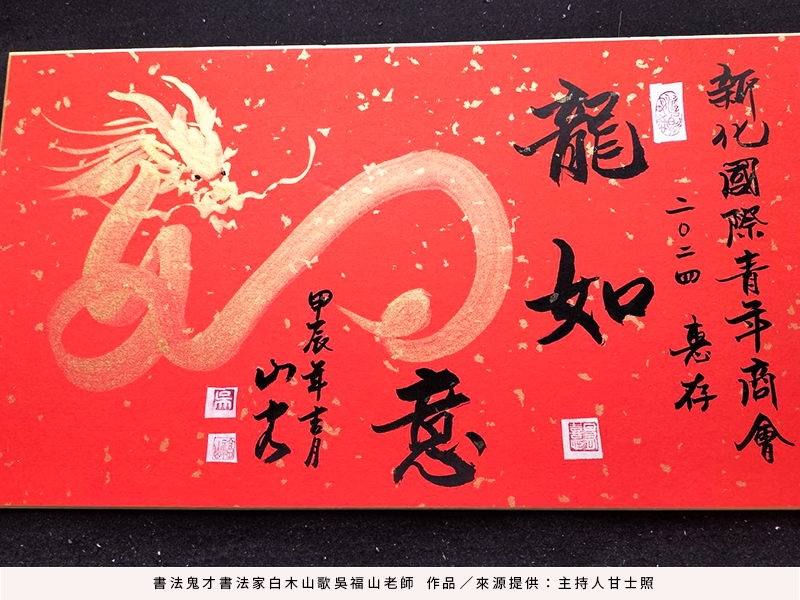 新化國際青年商會
二〇二四 惠存
龍如意
甲辰年吉月
書法鬼才書法家白木山歌吳福山老師 作品／來源提供：主持人甘士照